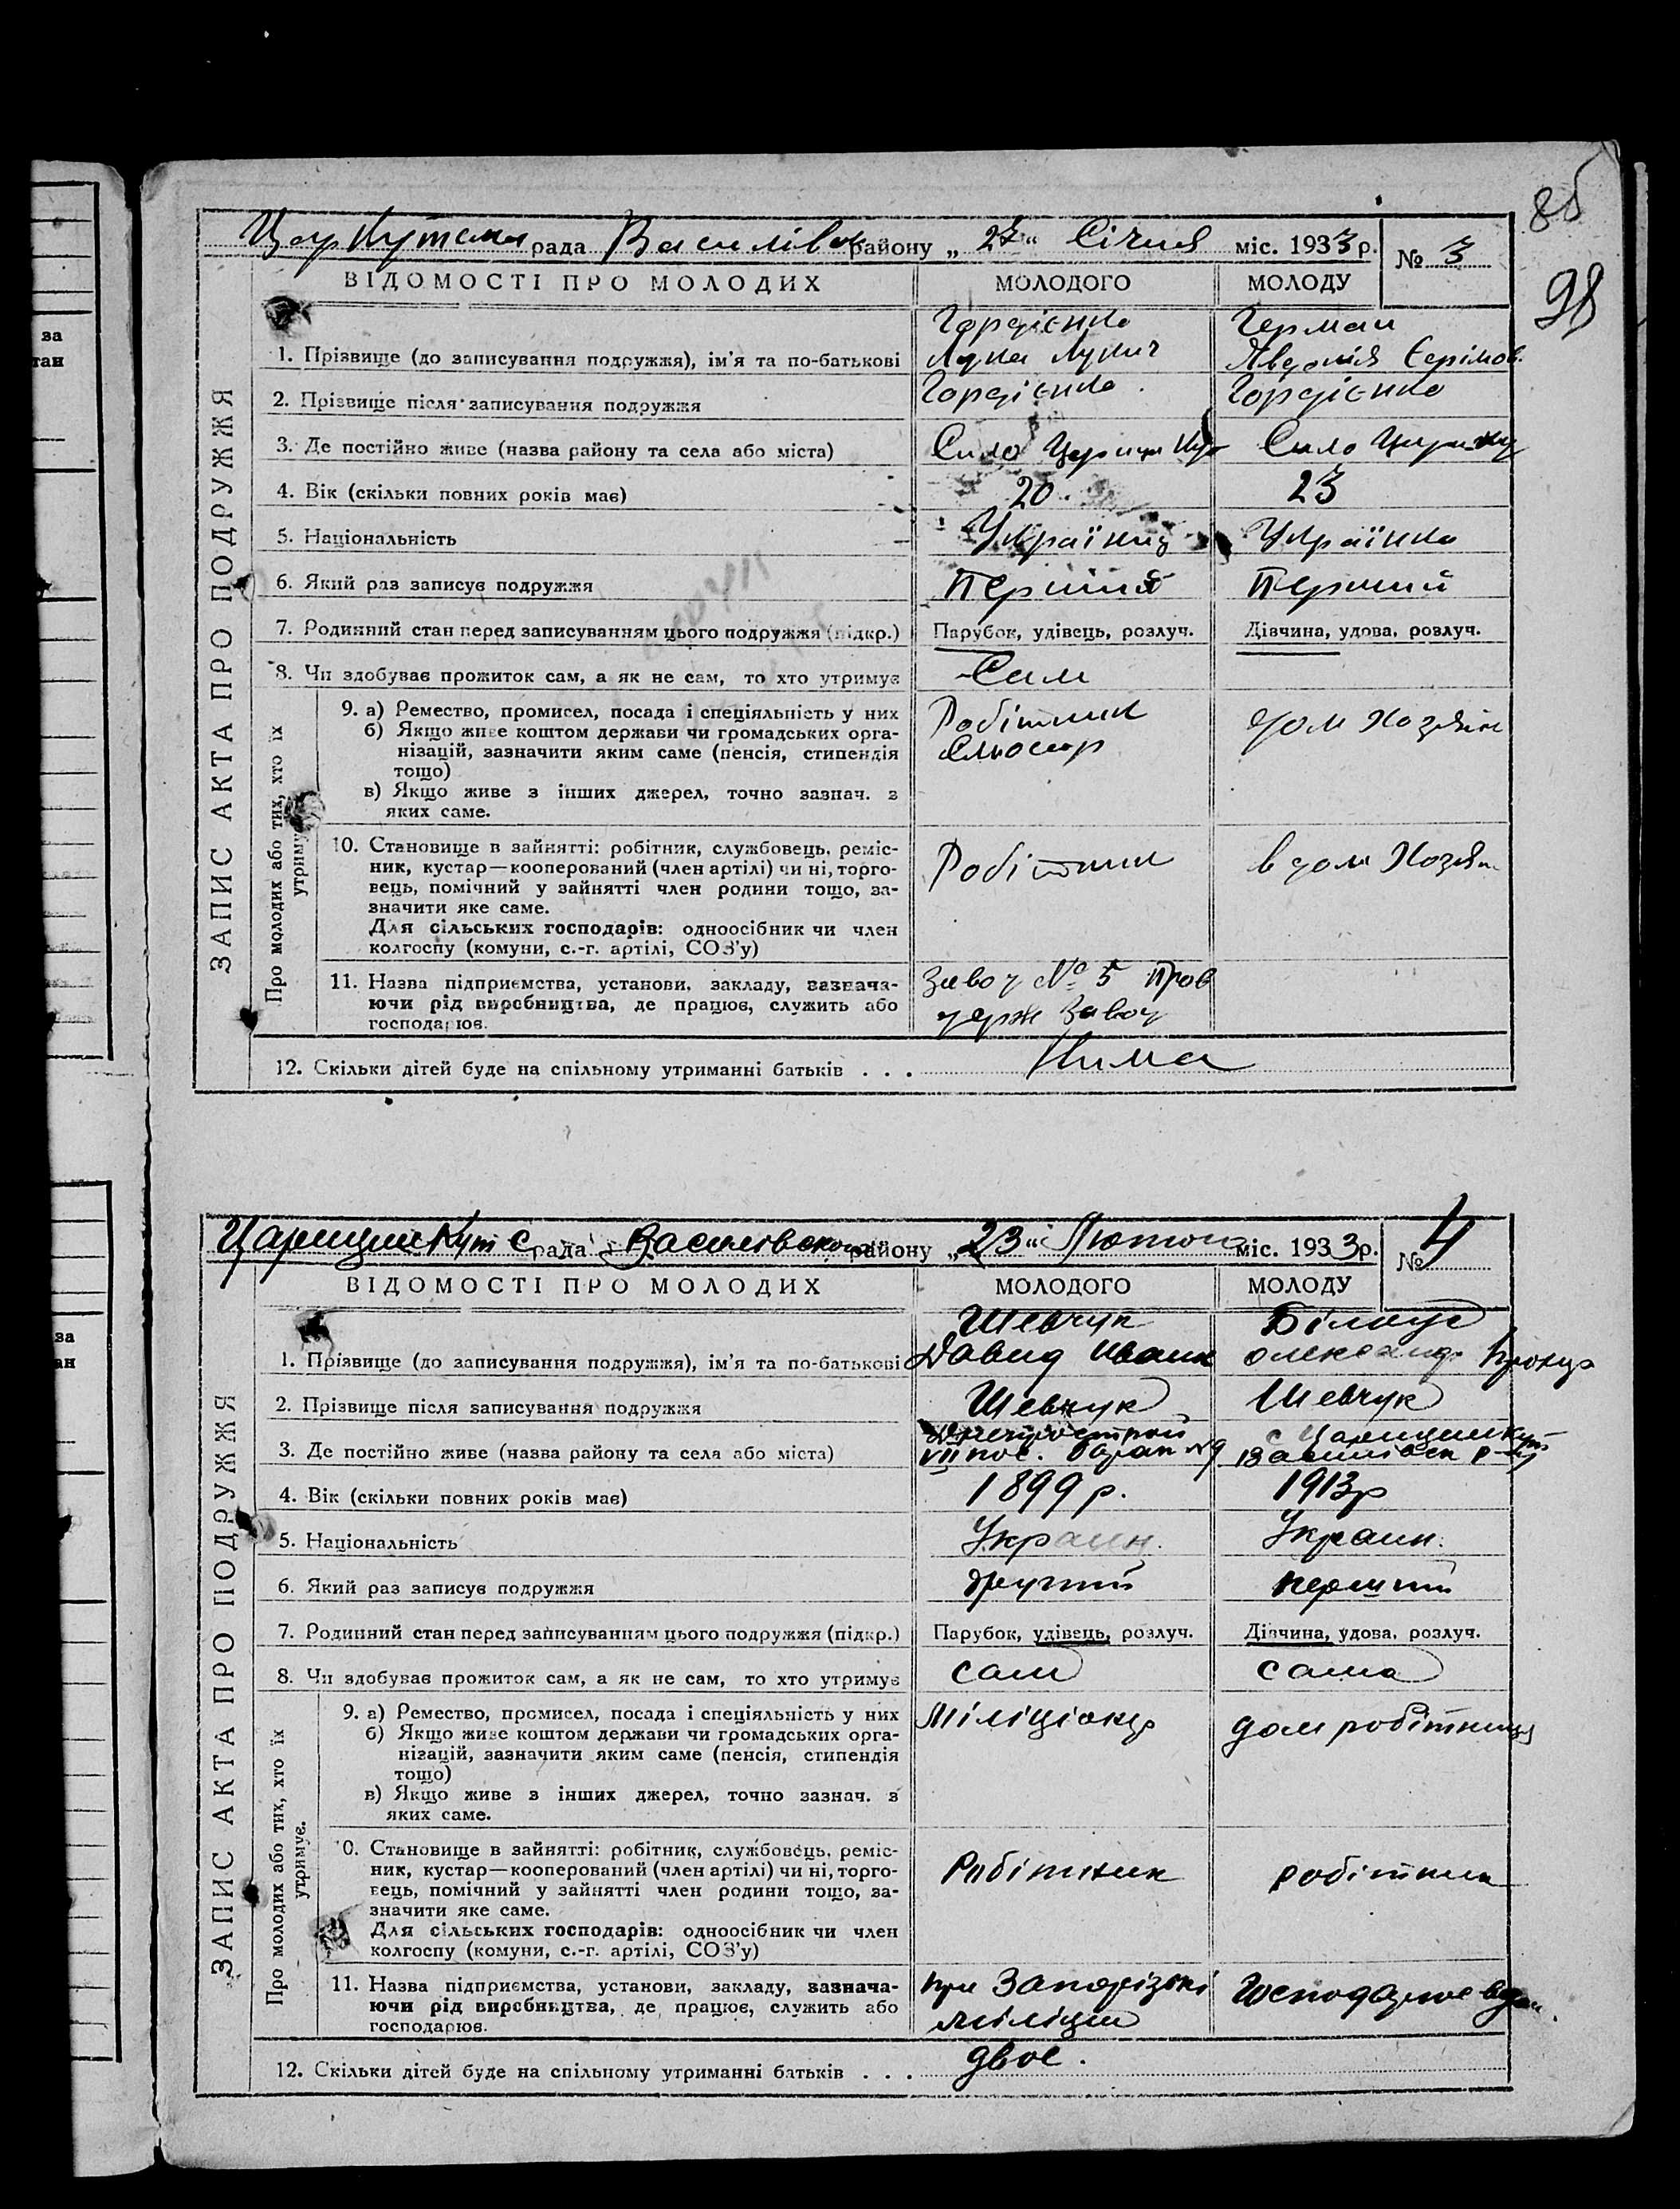 85
98
за
тан
ЗАПИС АКТА ПРО ПОДРУЖЖЯ
ЦарКутська рада Василівськ району „27“ Січня міс. 1933р. № 3
ВІДОМОСТІ ПРО МОЛОДИХ МОЛОДОГО МОЛОДУ
Гордієнко Герман
1. Прізвище (до записування подружжя), ім'я та по-батькові Лука Лукич Явдокія Єфрімов.
2. Прізвище після записування подружжя Гордієнко Гордієнко
3. Де постійно живе (назва району та села або міста) Село Царицин Кут Село
4. Вік (скільки повних років має) 20 23
5. Національність Українец Українка
6. Який раз записує подружжя Перший Перший
7. Родинний стан перед записуванням цього подружжя (підкр.) Парубок, удівець, розлуч. Дівчина, удова, розлуч.
8. Чи здобуває прожиток сам, а як не сам, то хто утримує Сам
Про молодих або тих, хто їх
утримує.
9. а) Ремество, промисел, посада і спеціяльність у них Робітник дом Хозяін
б) Якщо живе коштом держави чи громадських орга- Слюсар
нізацій, зазначити яким саме (пенсія, стипендія
тощо)
в) Якщо живе з інших джерел, точно зазнач. з
яких саме.
10. Становище в зайнятті: робітник, службовець, реміс-
ник, кустар—кооперований (член артілі) чи ні, торго- Робітник в дом Хозяін
вець, помічний у зайнятті член родини тощо, за-
значити яке саме.
Для сільських господарів: одноосібник чи член
колгоспу (комуни, с.-г. артілі, СОЗ'у)
11. Назва підприємства, установи, закладу, зазнача- Завод № 5 Пров
ючи рід виробництва, де працює, служить або держ Завод
господарює.
12. Скільки дітей буде на спільному утриманні батьків . . . Нима
за
ан
ЗАПИС АКТА ПРО ПОДРУЖЖЯ
Царицин Кут С рада Василівского району „23“ Лютого міс. 1933р. № 4
ВІДОМОСТІ ПРО МОЛОДИХ МОЛОДОГО МОЛОДУ
Шевчук Білоус
1. Прізвище (до записування подружжя), ім'я та по-батькові Давид Иван Олександ.
2. Прізвище після записування подружжя Шевчук Шевчук
Днепрострой с Царицин Кут
3. Де постійно живе (назва району та села або міста) VII пос. барак №9 Василівск р-ну
4. Вік (скільки повних років має) 1899 р. 1913р
5. Національність Украин. Украин.
6. Який раз записує подружжя другий перший
7. Родинний стан перед записуванням цього подружжя (підкр.) Парубок, удівець, розлуч. Дівчина, удова, розлуч.
8. Чи здобуває прожиток сам, а як не сам, то хто утримує сам сама
Про молодих або тих, хто їх
утримує.
9. а) Ремество, промисел, посада і спеціяльність у них Міліціонер дом робітниця
б) Якщо живе коштом держави чи громадських орга-
нізацій, зазначити яким саме (пенсія, стипендія
тощо)
в) Якщо живе з інших джерел, точно зазнач. з
яких саме.
0. Становище в зайнятті: робітник, службовець, реміс-
ник, кустар—кооперований (член артілі) чи ні, торго- Робітник робітник
вець, помічний у зайнятті член родини тощо, за-
значити яке саме.
Для сільських господарів: одноосібник чи член
колгоспу (комуни, с.-г. артілі, СОЗ'у)
11. Назва підприємства, установи, закладу, зазнача- при Запорізькі Господарює вдом.
ючи рід виробництва, де працює, служить або міліции
господарює.
12. Скільки дітей буде на спільному утриманні батьків . . . двое.